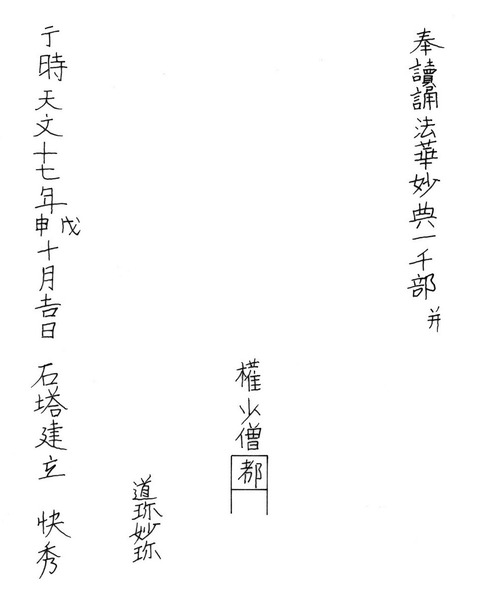 奉讀誦法華妙典一千部并
權少僧都
道珎妙珎
于時天文十七年戊申十月吉日 石塔建立 快秀